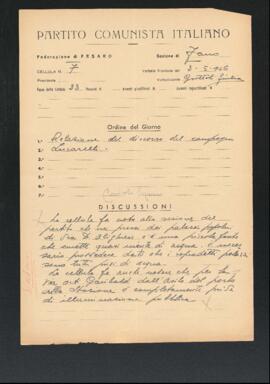 PARTITO COMUNISTA ITALIANO
Federazione di PESARO
Sezione di Fano
CELLULA N. 7
Verbale Riunione del 2-5-1946
Presidente
Verbalizzante
Forza della Cellula 33 Presenti N. Assenti giustificati N. Assenti ingiustificati N.
Ordine del Giorno
1° Relazione del discorso del compagno
2° Lucarelli
3°
4°
5°
6°
7°
DISCUSSIONI
La cellula fa noto alla sezione del
partito che nei pressi dei palazzi popolari
di Via D. Alighieri c'è una piccola fonte
che emette quasi niente di acqua. È neces
sario provvedere dato che i sopradetti palazzi
sono tutti privi di acqua.
La cellula fa anche notare che per la
Via Garibaldi dall'
della Stazione è completamente priva
di illuminazione pubblica